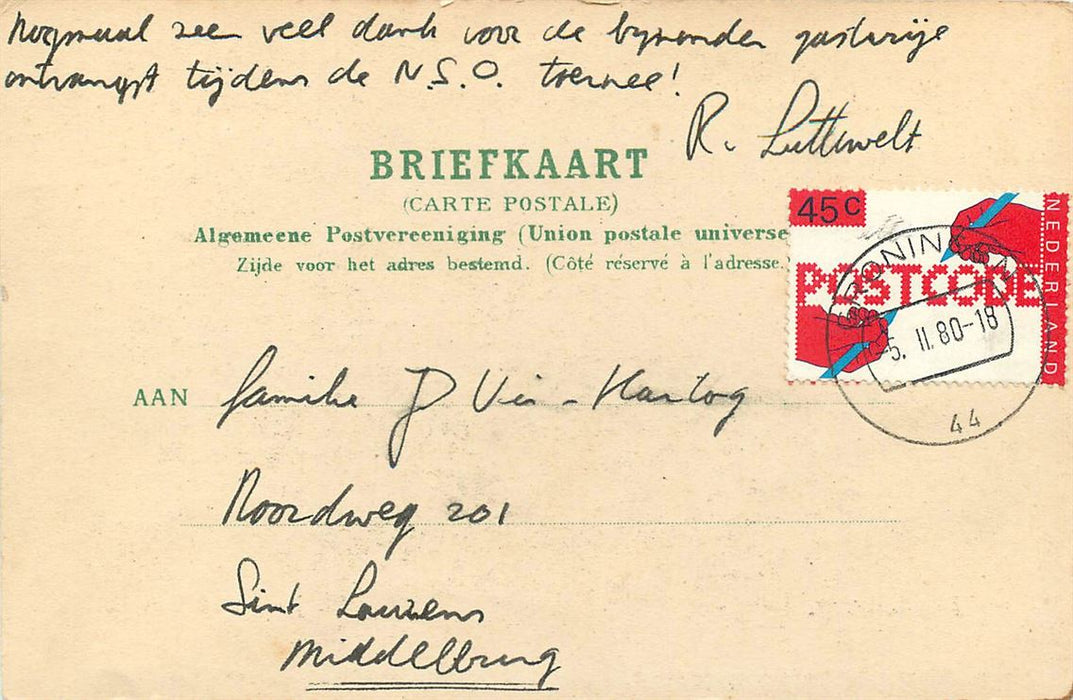 Nogmaal zeer veel dank voor de byzonder gastvrije
ontvangst tijdens de N.S.O. toernee!
R. Luttervelt
BRIEFKAART
(CARTE POSTALE)
Algemeene Postvereeniging (Union postale universe
Zijde voor het adres bestemd. (Côté réservé à l'adresse.)
45c
NEDERLAND
POSTCODE
GRONINGEN
-5. II. 80-18
44
AAN familie J Vis - Hartog
Noordweg 201
Sint Laurens
Middelburg